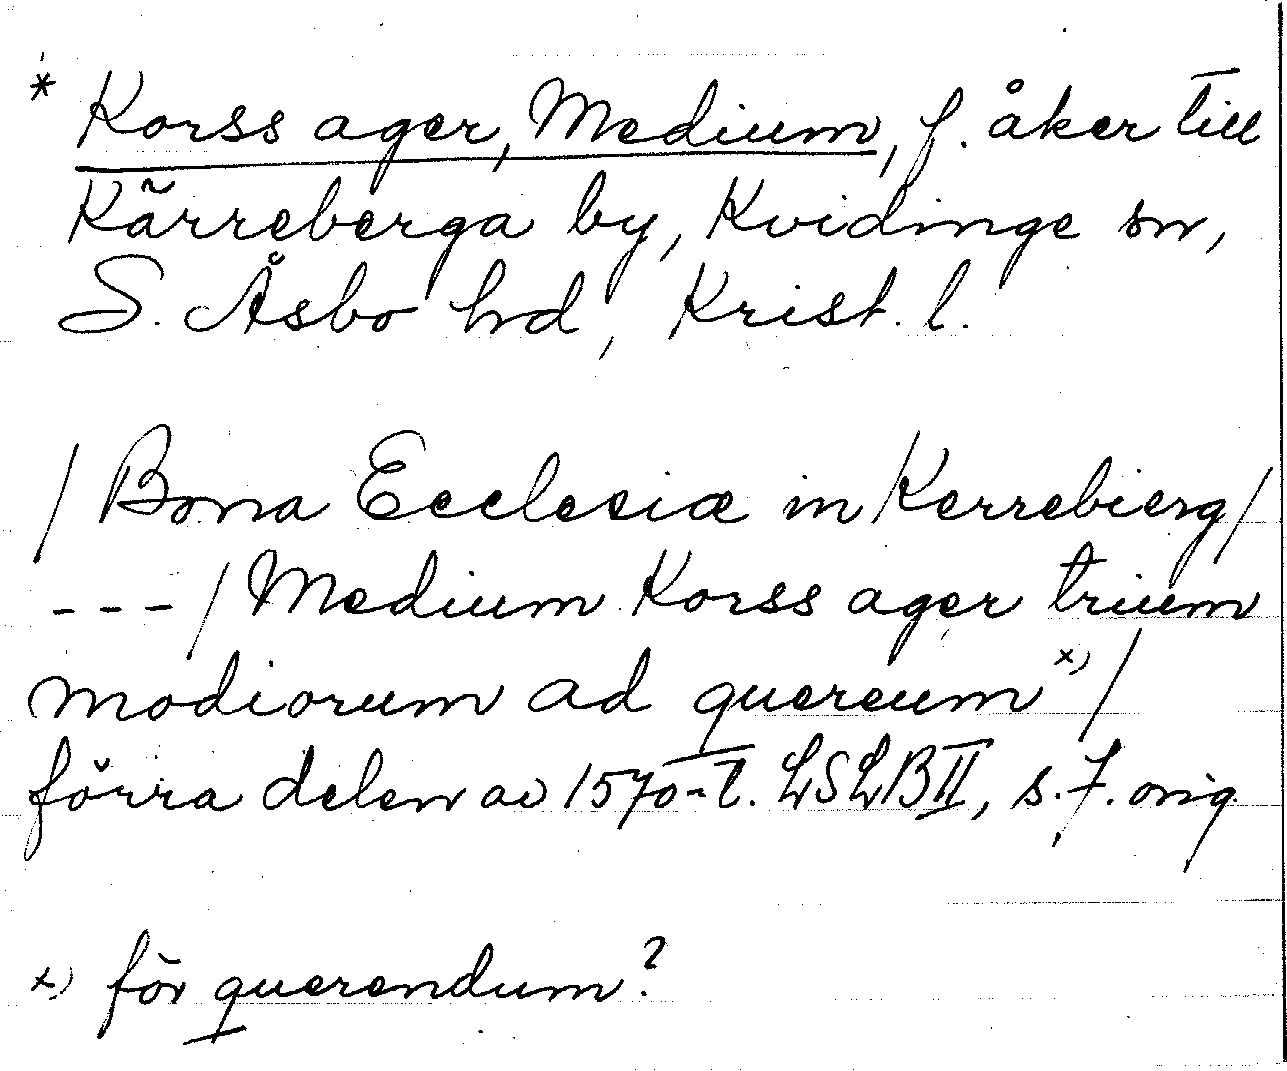 * Korss ager, Medium, f. åker till
Kärreberga by, Kvidinge sn,
S. Åsbo hd, Krist. l.
/ Bona Ecclesiæ in Kerrebierg /
--- / Medium Korss ager trium
modiorum ad quercum x) /
förra delen av 1570-t. LSLB II, s. 7. orig.
x) för querendum?